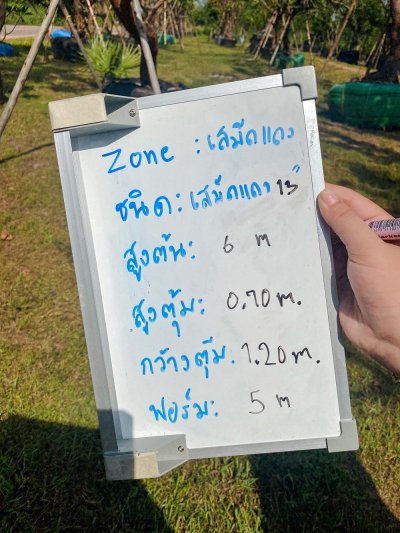 Zone : เสม็ดแดง
ชนิด : เสม็ดแดง 13"
สูงต้น : 6 m
สูงตุ้ม : 0.70 m.
กว้างตุ้ม : 1.20 m.
ฟอร์ม : 5 m